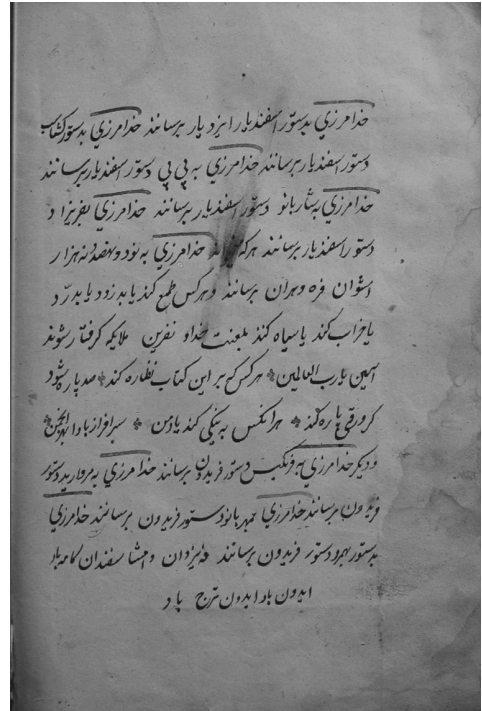 خدامرزي بدستور اسفندیار ایزدیار برسانند خدامرزي بدستور
دستور اسفندیار برسانند خدامرزي به پی پی دستور اسفندیار برسانند
خدامرزي بشاربانو دستور اسفندیار برسانند خدامرزي
دستور اسفندیار برسانند خدامرزي به نود و نهصد و نه هزار
اشوان فره وهران برسانند و هر کس طمع کند یا بدزدد یا بدرد
یا خراب کند یا سیاه کند بلعنت خدا و نفرین ملایکه گرفتار شوند
امین یارب العالمین هر کس که بر این کتاب نظاره کند صد پاره شود
گر ورقی پاره کند هر انکس به نیکی کند یاد من سرافراز باد
و دیگر خدامرزي دستور فریدون برسانند خدامرزي به مروارید دستور
فریدون برسانند خدامرزي بمهربانو دستور فریدون برسانند خدامرزي
بدستور بهرود دستور فریدون برسانند یزدان و امشاسفندان کامه باد
ایدون باد ایدون ترج باد